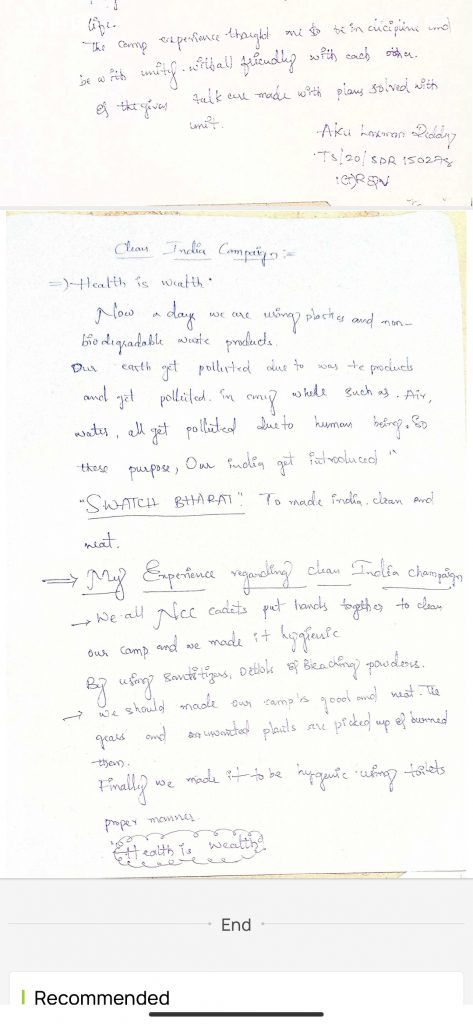 life.
The camp experience thought me to be in ciciplins and
be with unity. with all friendly with each other.
of the given talk are made with plans solved with
unit.
Aku Laxman Reddy
TS/20/SDR 150278
Clean India Campaign :=
=> Health is wealth.
Now a day we are using plastics and non-
biodigradable waste products.
Our earth get pollurted due to was te products
and get polleited. in any where such as. Air,
water, all get polluted due to human being. So
these purpose, Our india get introduced "
"SWATCH BHARAT". To made india. clean and
neat.
=> My Experience regarding clean India champaign
→ We all Ncc cadets put hands together to clean
our camp and we made it hygienic
By using Sanitigers, Dettols & Bleaching powders.
→ We should made our camp's good and neat. The
and unwanted plants are picked up & burned
them.
Finally we made it to be hygenic using toilets
proper manner.
"Health is wealth"
End
Recommended